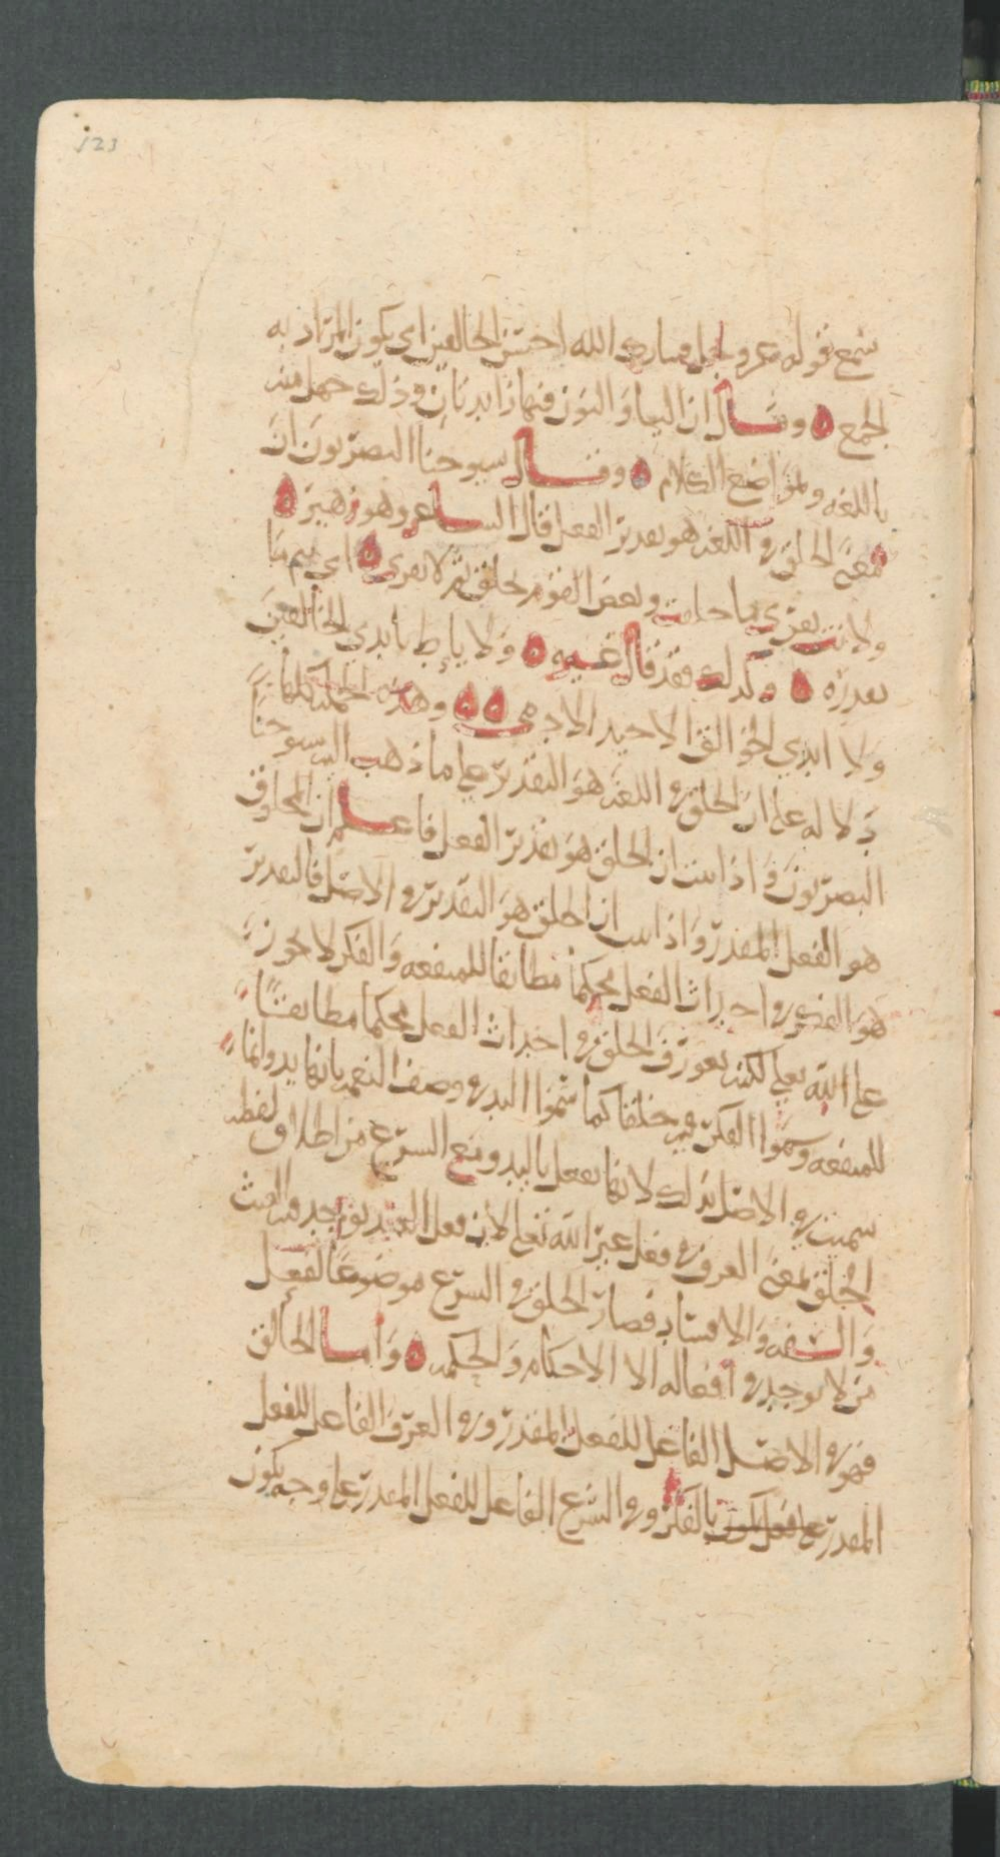 123
سمع قوله عز وجل فتبارك الله احسن الخالقين اي يكون المراد به
الجمع ه وقال ان اليا والنون فيها زايدتان وذلك جهل منه
باللغه ولمواضع الكلام ه وقال شيوخنا البصريون ان
معنى الخلق في اللغه هو تقدير الفعل قال الشاعر وهو زهير ه
ولانت تفري ما خلقت وبعض القوم يخلق ثم لا يفري ه اي يتم ما
يقدره ه وكذلك فقد قال غيره ه ولا يإط بايدي الخالقين
ولا ايدي الخوالق الا جيد الادم ه ه وهذه الجمله كلها
دلاله على ان الخلق في اللغه هو التقدير على ما ذهب اليه شيوخنا
البصريون واذا ثبت ان الخلق هو تقدير الفعل فاعلم ان المخلوق
هو الفعل المقدر واذا ثبت ان الخلق هو التقدير في الاصل فالتقدير
هو الفكر في احداث الفعل محكما مطابقا للمنفعه والفكر لا يجوز
على الله تعلى لكنه تعورف الخلق في احداث الفعل محكما مطابقا
للمنفعه وسموا الفكر فيه خلقا كما سموا اليد في وصف النعمه بانها يد وانما
سميت في الاصل بذلك لانها تفعل باليد ومنع الشرع من اطلاق لفظه
الخلق بمعنى العرف في فعل غير الله تعلى لان فعل العبد يوجد فيه العبث
والسفه والافساد فصار الخلق في الشرع موضوعا لفعل
من لا يوجد في افعاله الا الاحكام والحكمه ه واما الخالق
فهو في الاصل الفاعل للفعل المقدر وفي العرف الفاعل للفعل
المقدر بالفكر وفي الشرع الفاعل للفعل المقدر على وجه يكون